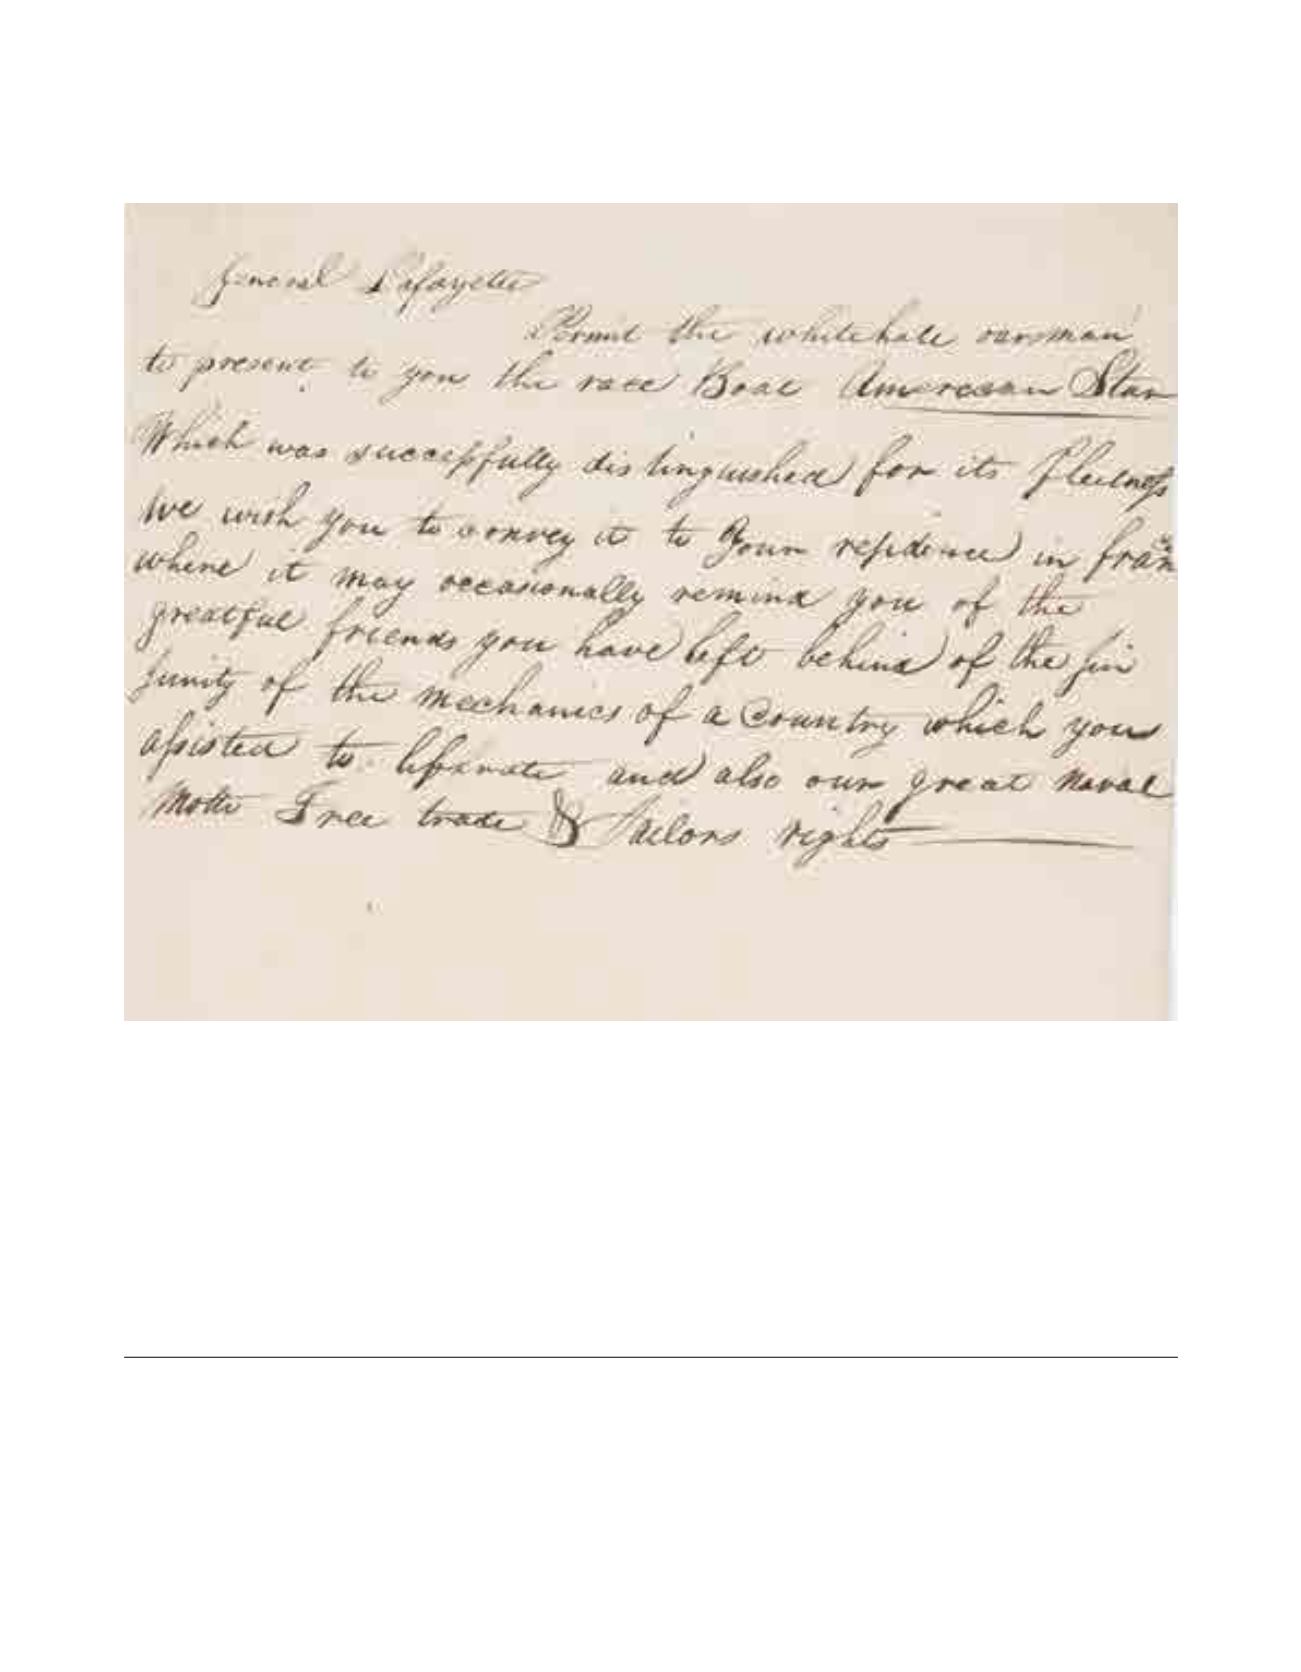 General Lafayette
Permit the whitehall oarsman
to present to you the race Boat American Star
Which was successfully distinguished for its fleetness
we wish you to convey it to your residence in
where it may occasionally remind you of the
greatful friends you have left behind of the
of the mechanics of a Country which you
assisted to and also our great Naval
Motto Free trade & Sailors rights